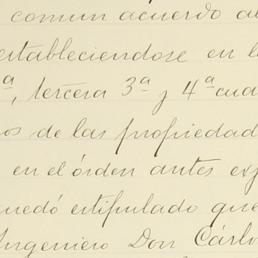 comun acuerdo a
estableciendose en l
ª, tercera 3ª y 4ª cua
os de las propiedad
en el órden antes ex
uedó estipulado que
Ingeniero Don Cárlo